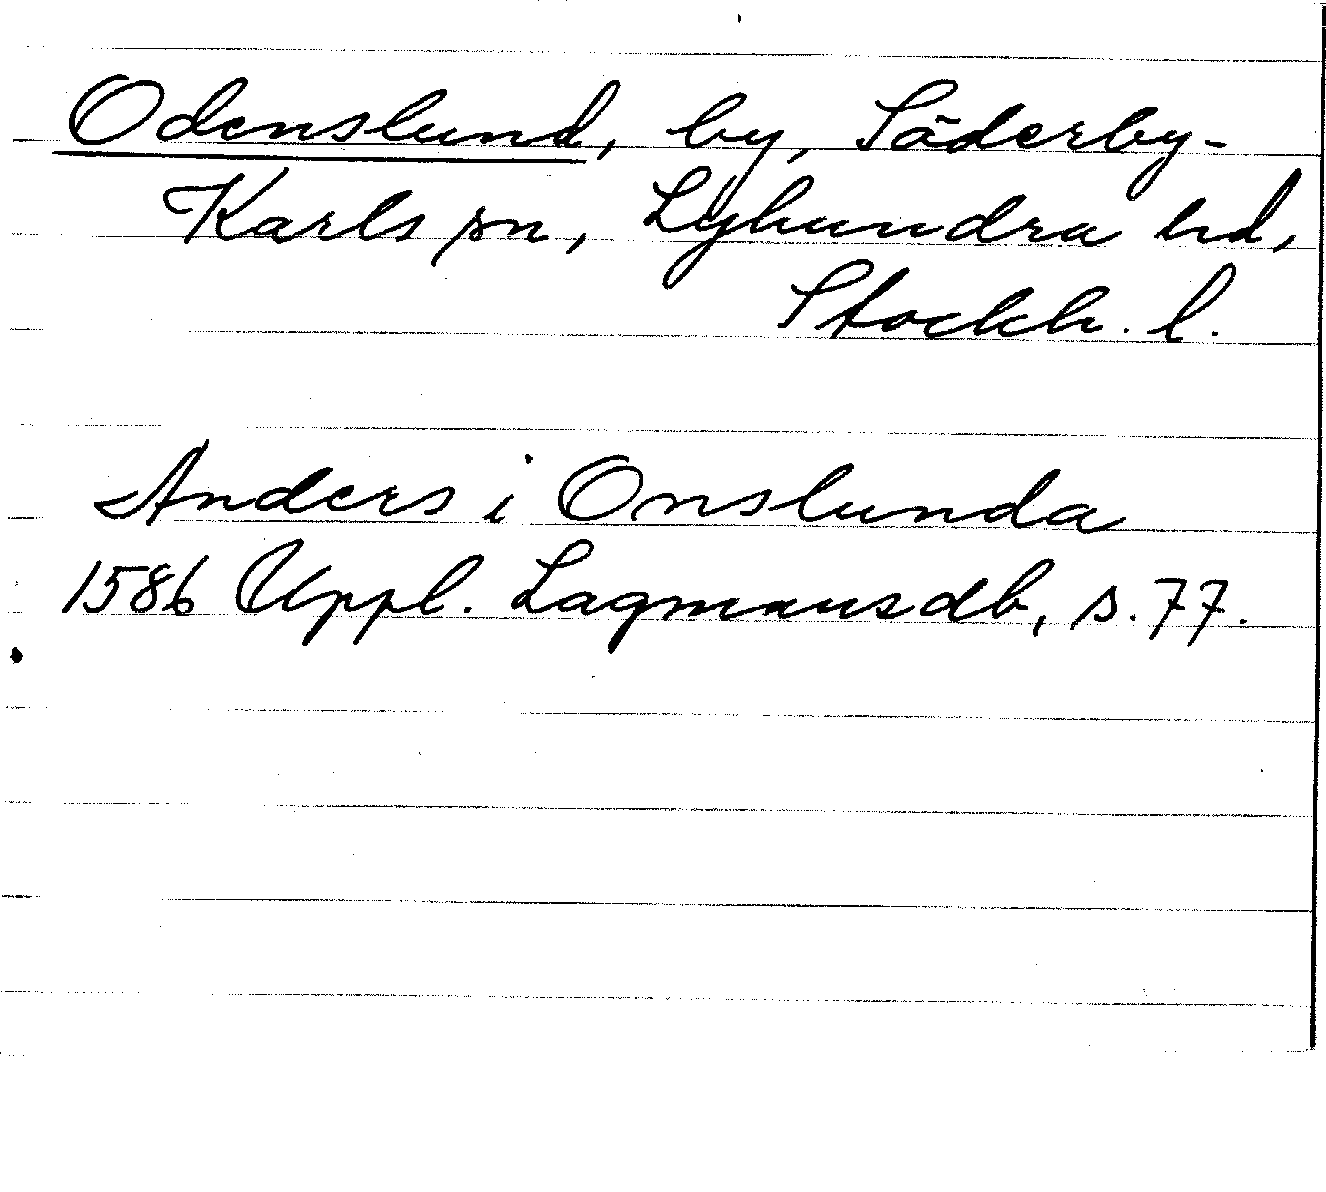 Odenslund, by, Söderby-
Karls sn, Lyhundra hd,
Stockh. l.
Anders i Onslunda
1586 Uppl. Lagmansdb, s. 77.